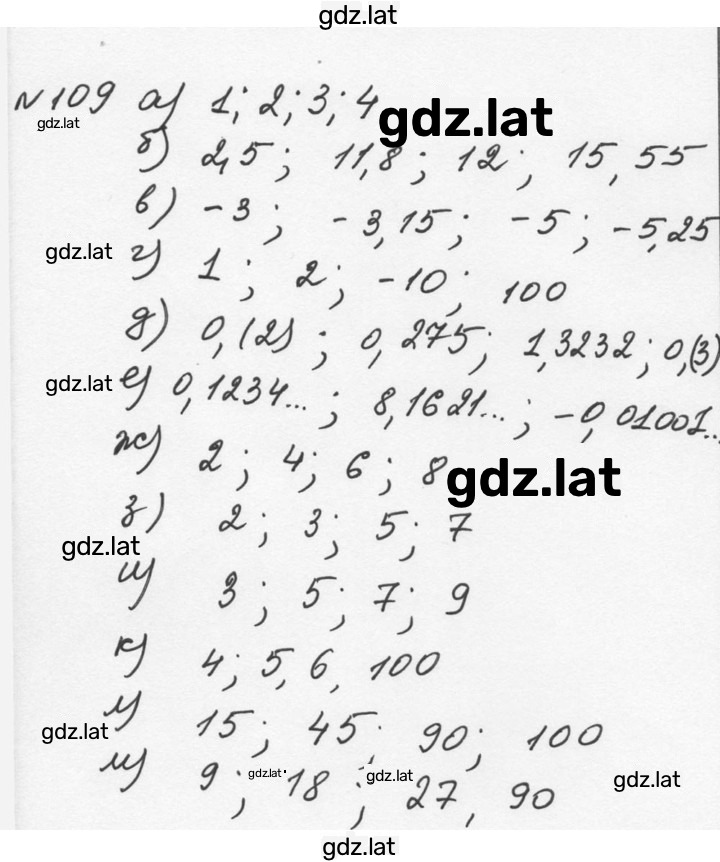 gdz.lat
№109 а) 1; 2; 3; 4 gdz.lat
gdz.lat
б) 2,5; 11,8; 12; 15,55
в) -3; -3,15; -5; -5,25
gdz.lat г) 1; 2; -10; 100
д) 0,(2); 0,275; 1,3232; 0,(3)
gdz.lat е) 0,1234...; 8,1621...; -0,01001...
ж) 2; 4; 6; 8 gdz.lat
з) 2; 3; 5; 7
gdz.lat
и) 3; 5; 7; 9
к) 4; 5, 6, 100
л) 15; 45; 90; 100
gdz.lat
м) 9; gdz.lat 18; gdz.lat 27, 90 gdz.lat
gdz.lat